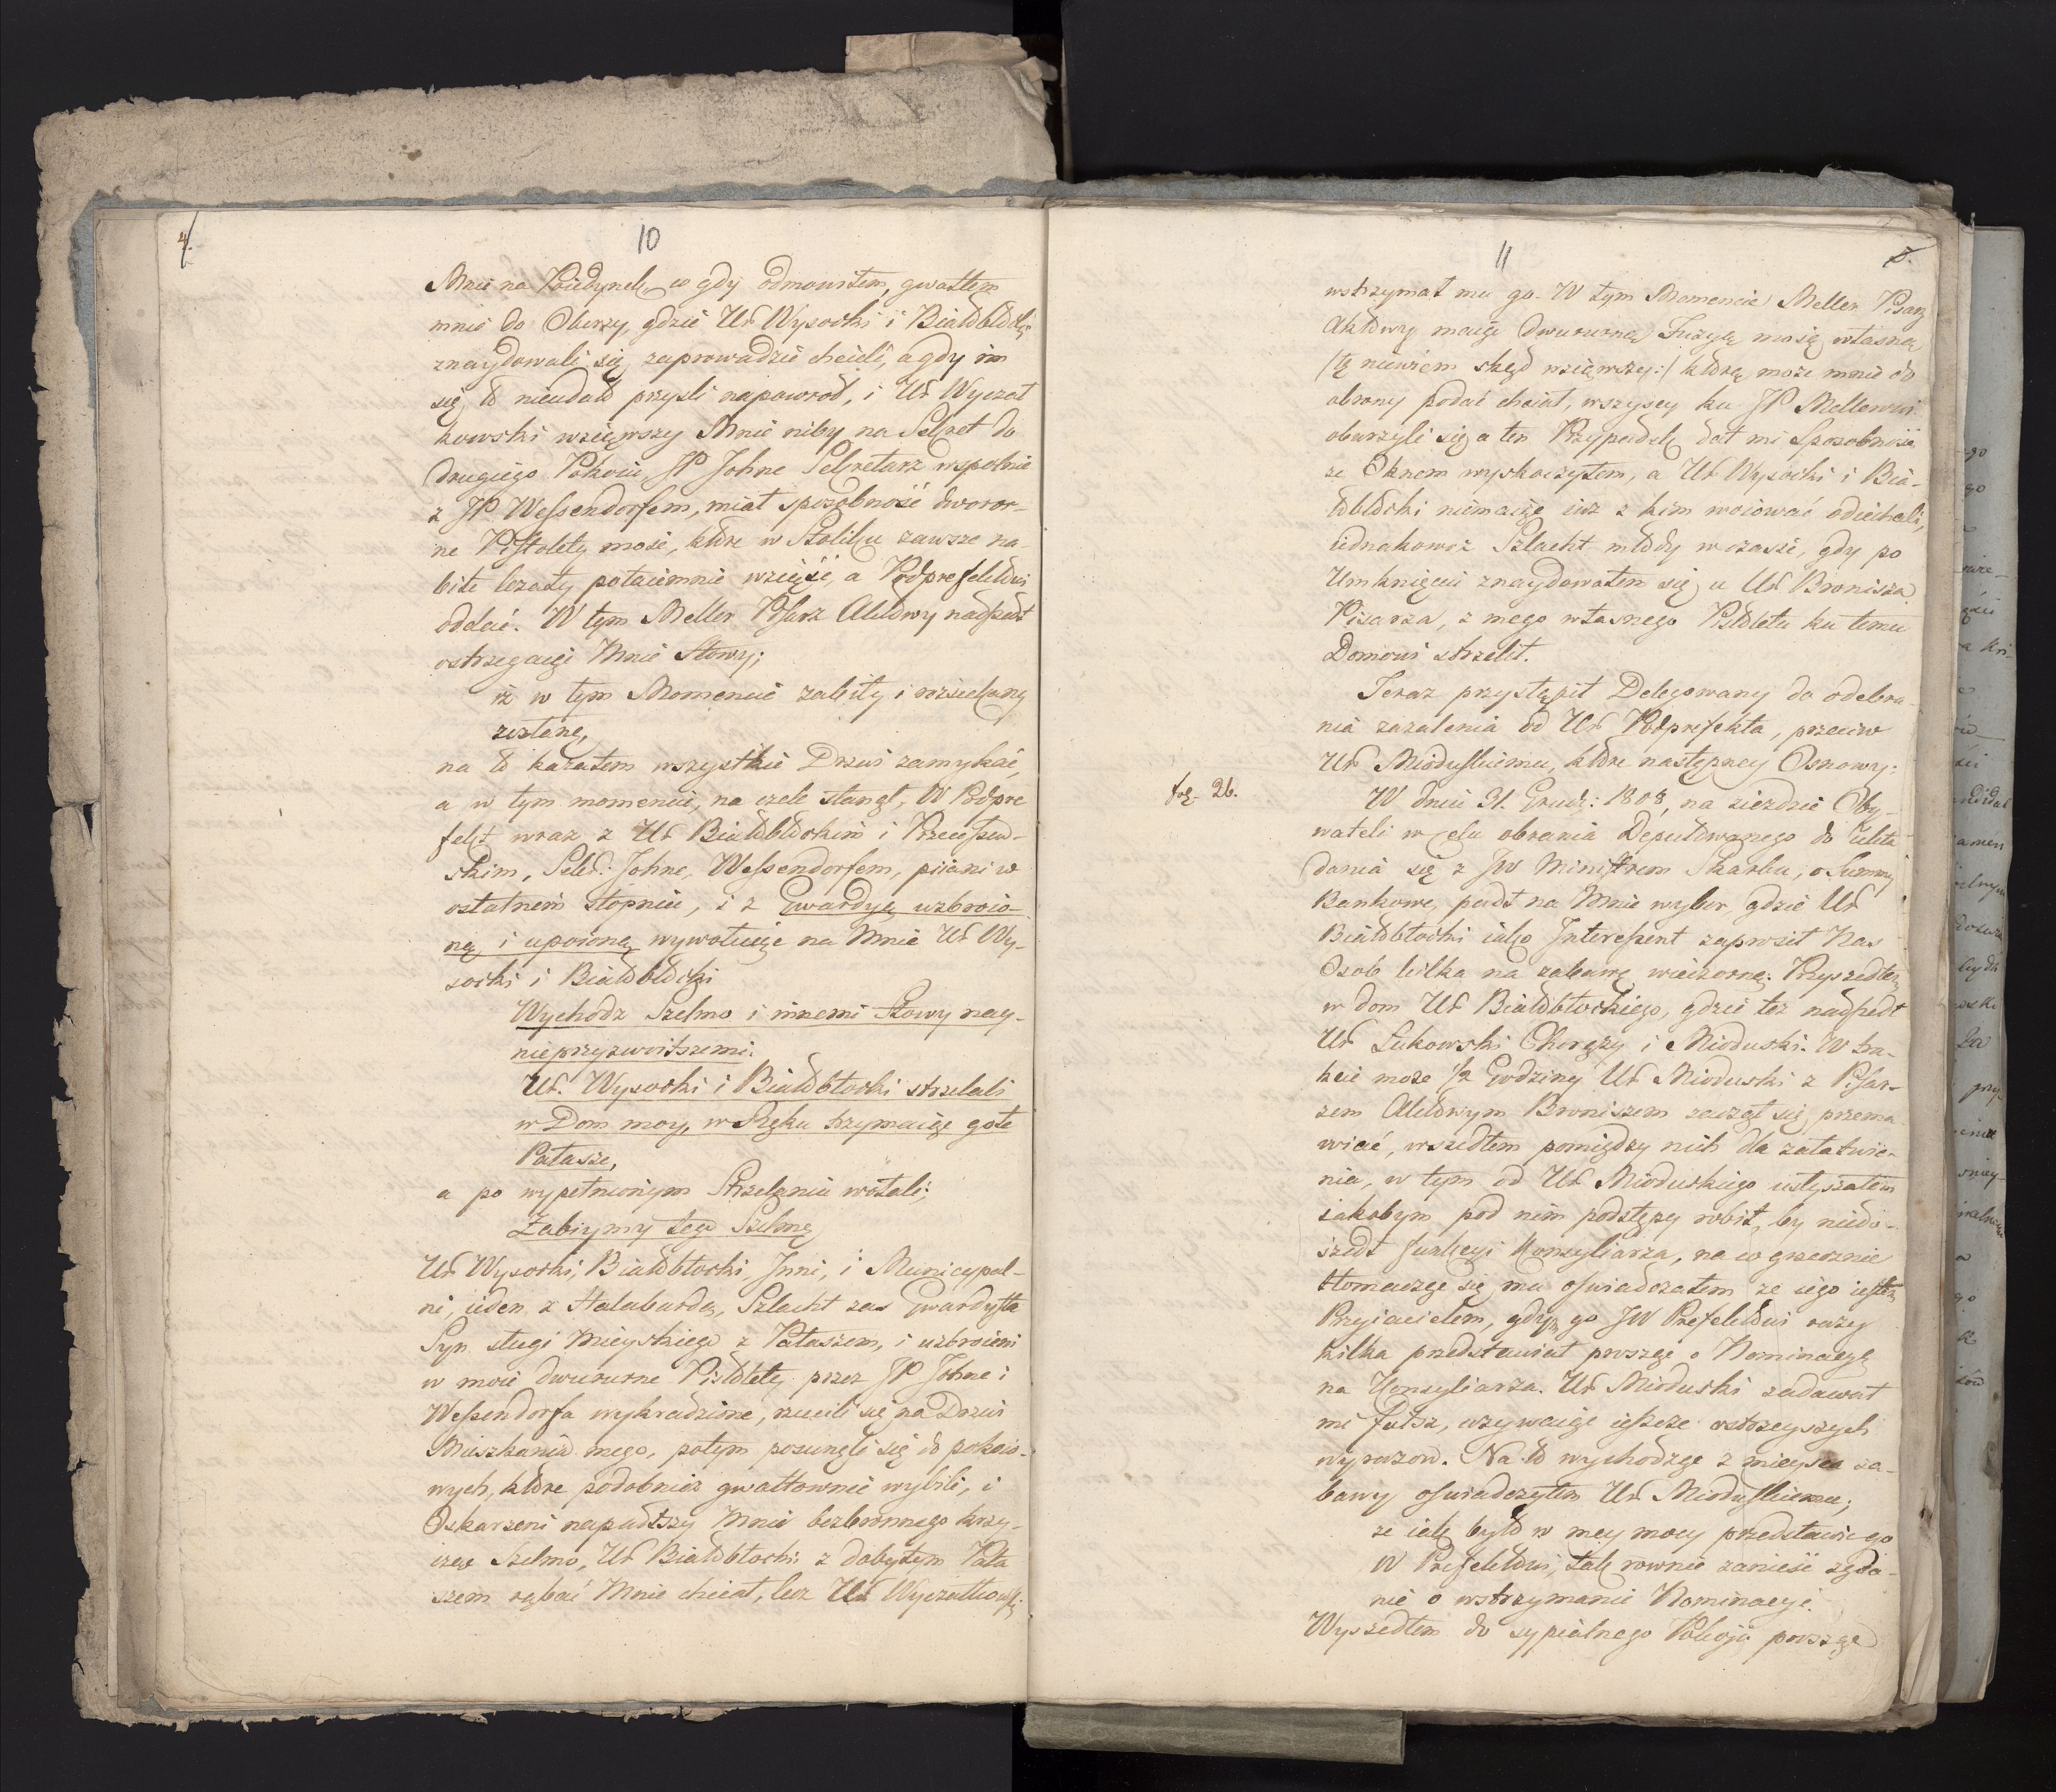 4.
10
Mnie na Poiedynek, co gdy odmowiłem, gwałtem
mnie do Oberzy, gdzie Ur Wysocki i Białobłocki
znaydowali się, zaprowadzić chcieli, a gdy im
się to nieudało przyśli napowrot, i Ur Wyczał
kowski wziąwszy Mnie niby na Sekret do
drugiego Pokoiu JP Johne Sekretarz wspolnie
z JP Wessendorfem, miał sposobność dworor-
ne Pistolety moie, ktore w Stoliku zawsze na-
bite leżały potaiemnie wziąść, a Podprefektowi
oddać. W tym Meller Pisarz Aktowy nadszedł
ostrzegaiąc Mnie Słowy;
iż w tym Momencie zabity i rozsiekany
zostanę,
na to kazałem wszystkie Drzwi zamykać,
a w tym momencie, na czele stanął, W Podpre
fekt wraz z Ur Białobłockim i Przeciszew-
skim, Sekr: Johne, Wessendorfem, piiani w
ostatnim stopniu, i z Gwardyą uzbroio-
ną i upoioną wywołuiąc na Mnie Ur Wy-
socki i Białobłocki
Wychodz Szelmo i innemi Słowy nay-
nieprzyzwoitszemi.
Ur. Wysocki i Białobłocki strzelali
w Dom moy, w Ręku trzymaiąc gołe
Pałasze,
a po wypełnionym Strzelaniu wołali;
Zabiymy tego Szelmę
Ur Wysocki, Białobłocki, Jnni, i Municypal-
ni, ieden z Halabardą, Szlacht zas Gwardysta
Syn sługi Mieyskiego z Pałaszem, i uzbroieni
w moie dwururne Pistolety przez JP Johne i
Wessendorfa wykradzione, rzucili się na Drzwi
Mieszkania mego, potym posunęli się do pokoio-
wych, ktore podobnież gwałtownie wybili, i
Oskarzeni napadłszy Mnie bezbronnego krzy-
cząc Szelmo, Ur Białobłocki z dobytym Pała
szem rąbać Mnie chciał, lecz Ur Wyczałkowski
11
5.
wstrzymał mu go. W tym Momencie Meller Pisarz
Aktowy maiąc dwururną Fuzyę moią własną
/:tę niewiem skąd wziąwszy:/ ktorą może mnie do
obrony podać chciał, wszyscy ku JP Mellerowi
oburzyli się a ten Przypadek dał mi Sposobność
że Oknem wyskoczyłem, a Ur Wysocki i Bia-
łobłocki niemaiąc iuż z kim woiować odiechali,
iednakowoż Szlacht młody w czasie, gdy po
Umknięciu znaydowałem się u Ur Bronisza
Pisarza, z mego własnego Pistoletu ku temu
Domowi strzelił.
Teraz przystąpił Delegowany do odebra-
nia zażalenia od Ur Podprefekta, przeciw
Ur Mioduskiemu, ktore następney Osnowy:
fol. 26.
W dniu 31. Grud: 1808, na zieździe Oby-
wateli w celu obrania Deputowanego do ukła
dania się z JW Ministrem Skarbu, o Summy
Bankowe, padł na Mnie wybor, gdzie Ur
Białobłocki iako Jnteressent zaprosił Nas
Osob kilka na zabawę wieczorną: Przyszedłem
w dom Ur Białobłockiego, gdzie też nadszedł
Ur Łukowski Chorąży i Mioduski. W tra-
kcie może 1/2 Godziny Ur Mioduski z Pisar-
zem Aktowym Broniszem zaczął się przema
wiać, wszedłem pomiędzy nich dla załatwie-
nia, w tym od Ur Mioduskiego usłyszałem
iakobym pod nim podstępy robił, by niedo-
szedł funkcyi Konsyliarza, na co grzecznie
tłomacząc się mu oswiadczałem że iego iestem
Przyiacielem, gdym go JW Prefektowi razy
kilka przedstawiał prosząc o Nominacyą
na Konsyliarza. Ur Mioduski zadawał
mi fałsz, używaiąc ieszcze ostrzeyszych
wyrazow. Na to wychodząc z mieysca za-
bawy oswiadczyłem Ur Mioduskiemu;
że iak było w mey mocy przedstawić go
W Prefektowi, tak rownie zanieść żąda-
nie o wstrzymanie Nominacyi.
Wyszedłem do sypialnego Pokoju prosząc